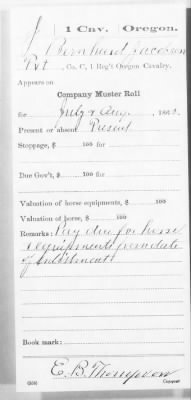 J | 1 Cav. | Oregon.
Bernhard Jacobson
Pvt., Co. C, 1 Reg't Oregon Cavalry.
Appears on
Company Muster Roll
for July & Aug, 186
Present or absent Present
Stoppage, $ 100 for
Due Gov't, $ 100 for
Valuation of horse equipments, $ 100
Valuation of horse, $ 100
Remarks: Pay due for horse
& equipments from date
of enlistment
Book mark:
E. B. Thompson
(358) Copyist.